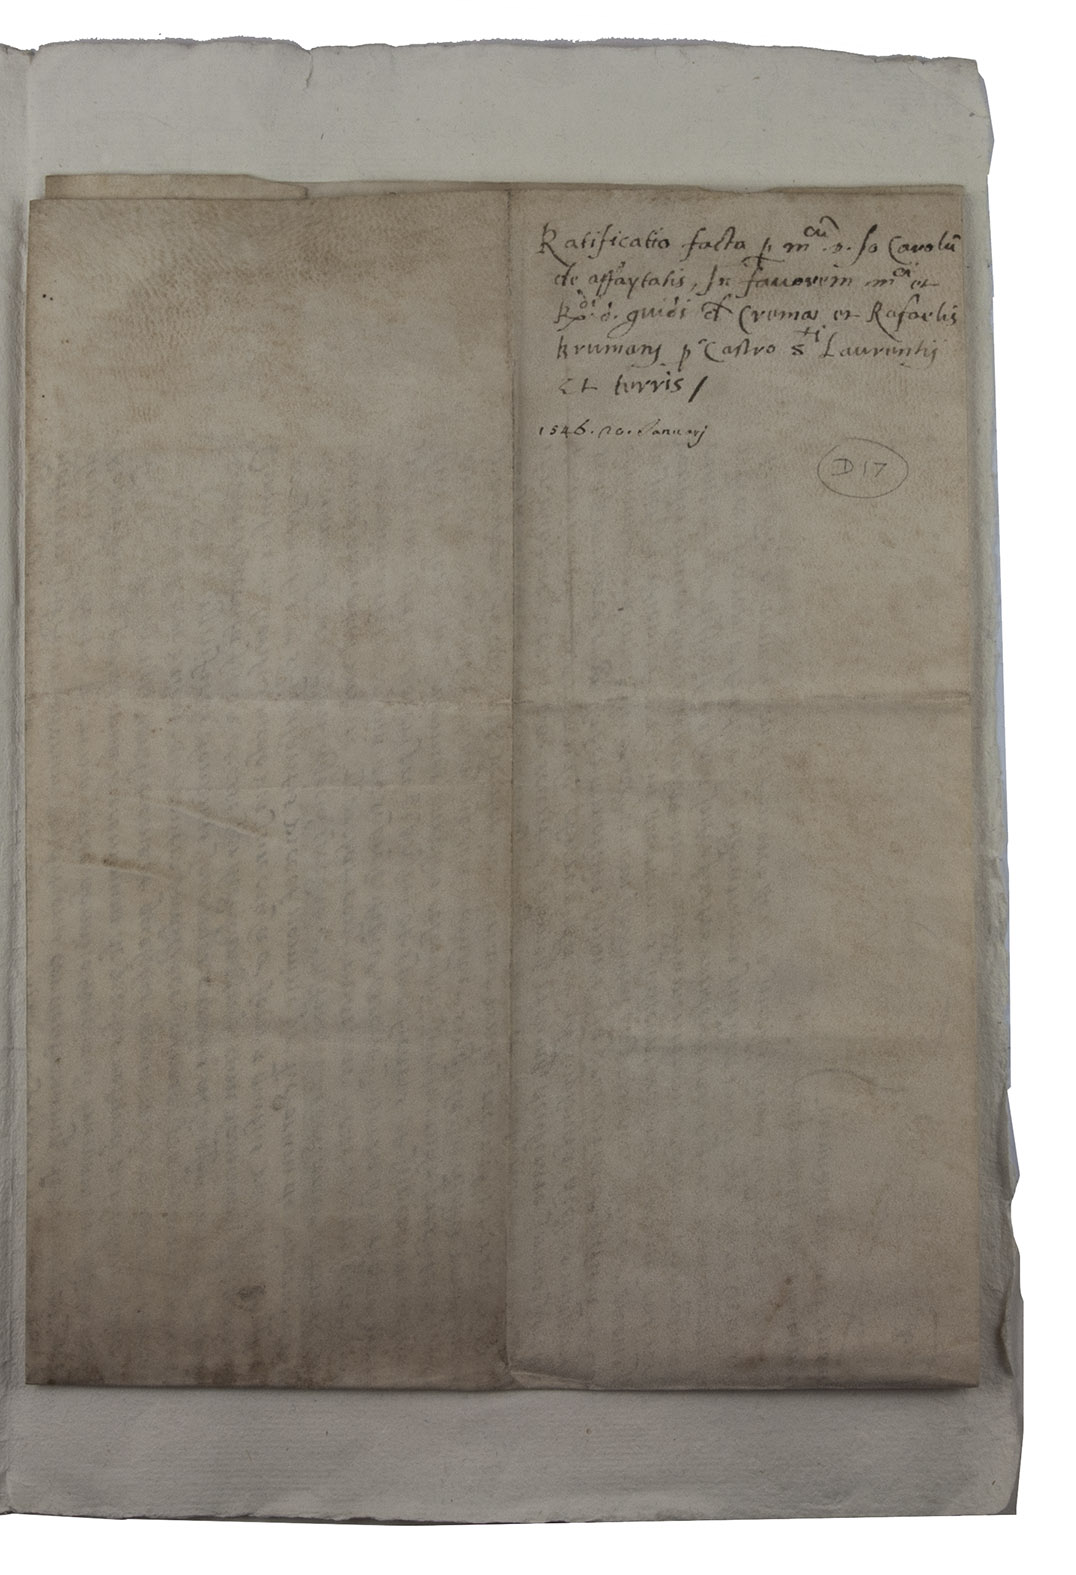 Ratificatio facta p mcũ d. Jo Carolũ
de affaytatis, In favorem mci et
Rdi d. guidi de Crema et Rafaelis
brumanj p Castro sti Laurentij
Et terris /
1546. 20. Januarj
D17